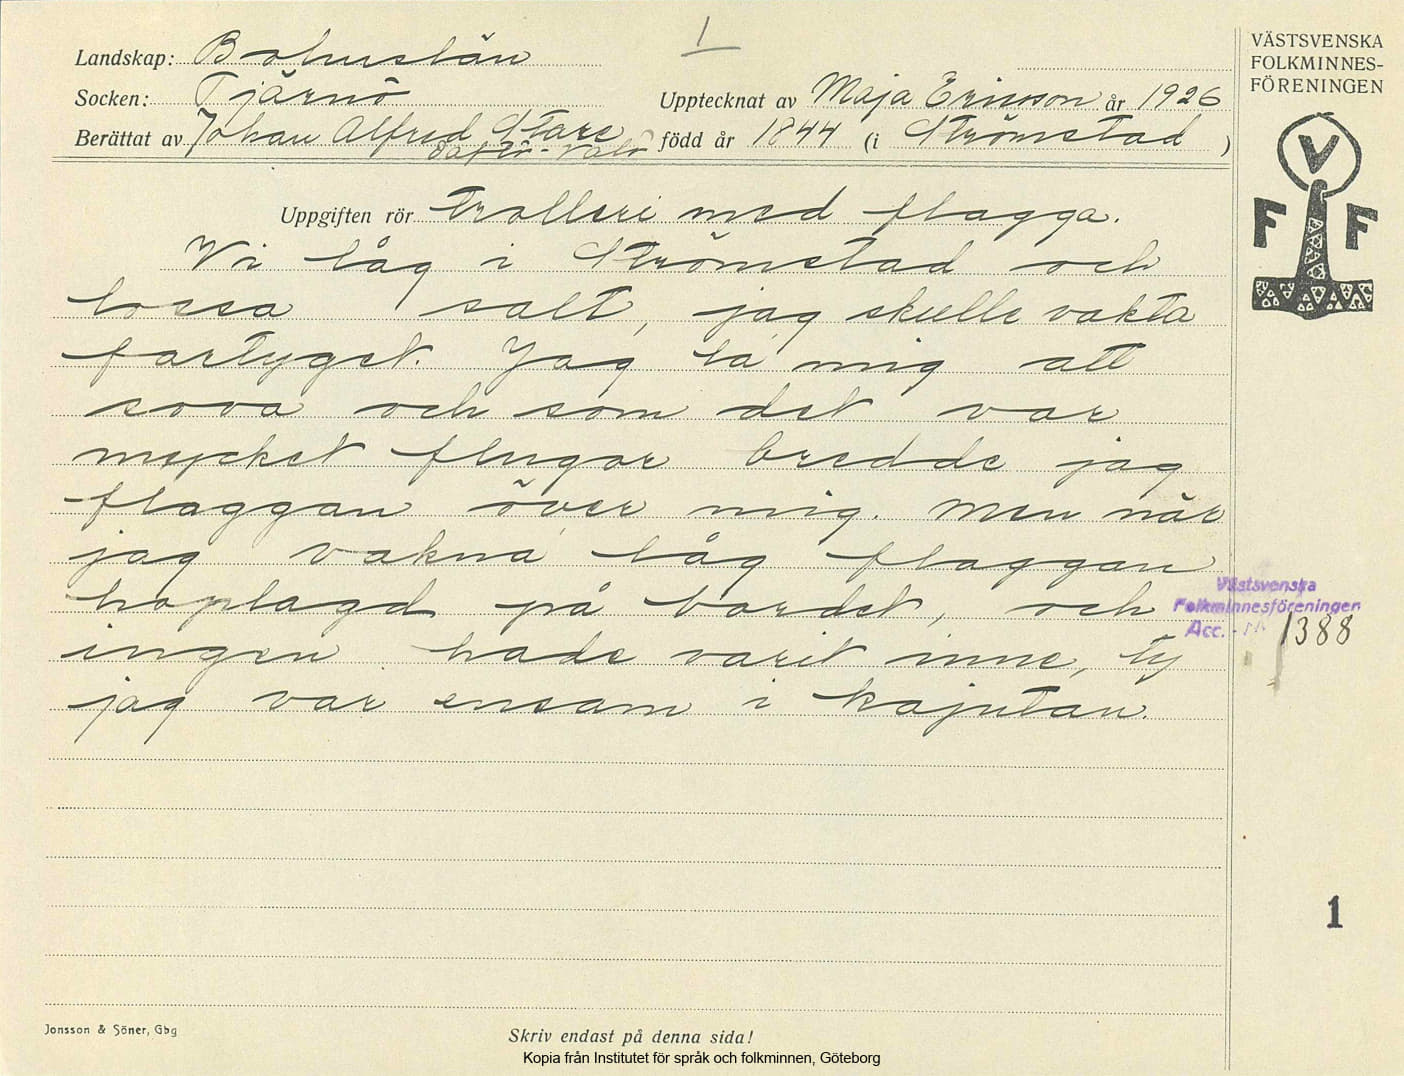 1
Landskap: Bohuslän
Socken: Tjärnö
Upptecknat av Maja Ericson år 1926
Berättat av Johan Alfred Stare född år 1844 (i Strömstad)
Saltö
VÄSTSVENSKA
FOLKMINNES-
FÖRENINGEN
V
F F
Uppgiften rör trolleri med flagga.
Vi låg i Strömstad och
lossa salt, jag skulle vakta
fartyget. Jag la mig att
sova och som det var
mycket flugor bredde jag
flaggan över mig. Men när
jag vakna låg flaggan
hoplagd på bordet, och
ingen hade varit inne, ty
jag var ensam i kajutan.
Västsvenska
Folkminnesföreningen
Acc. - nr 1388
1
Jonsson & Söner, Gbg
Skriv endast på denna sida!
Kopia från Institutet för språk och folkminnen, Göteborg